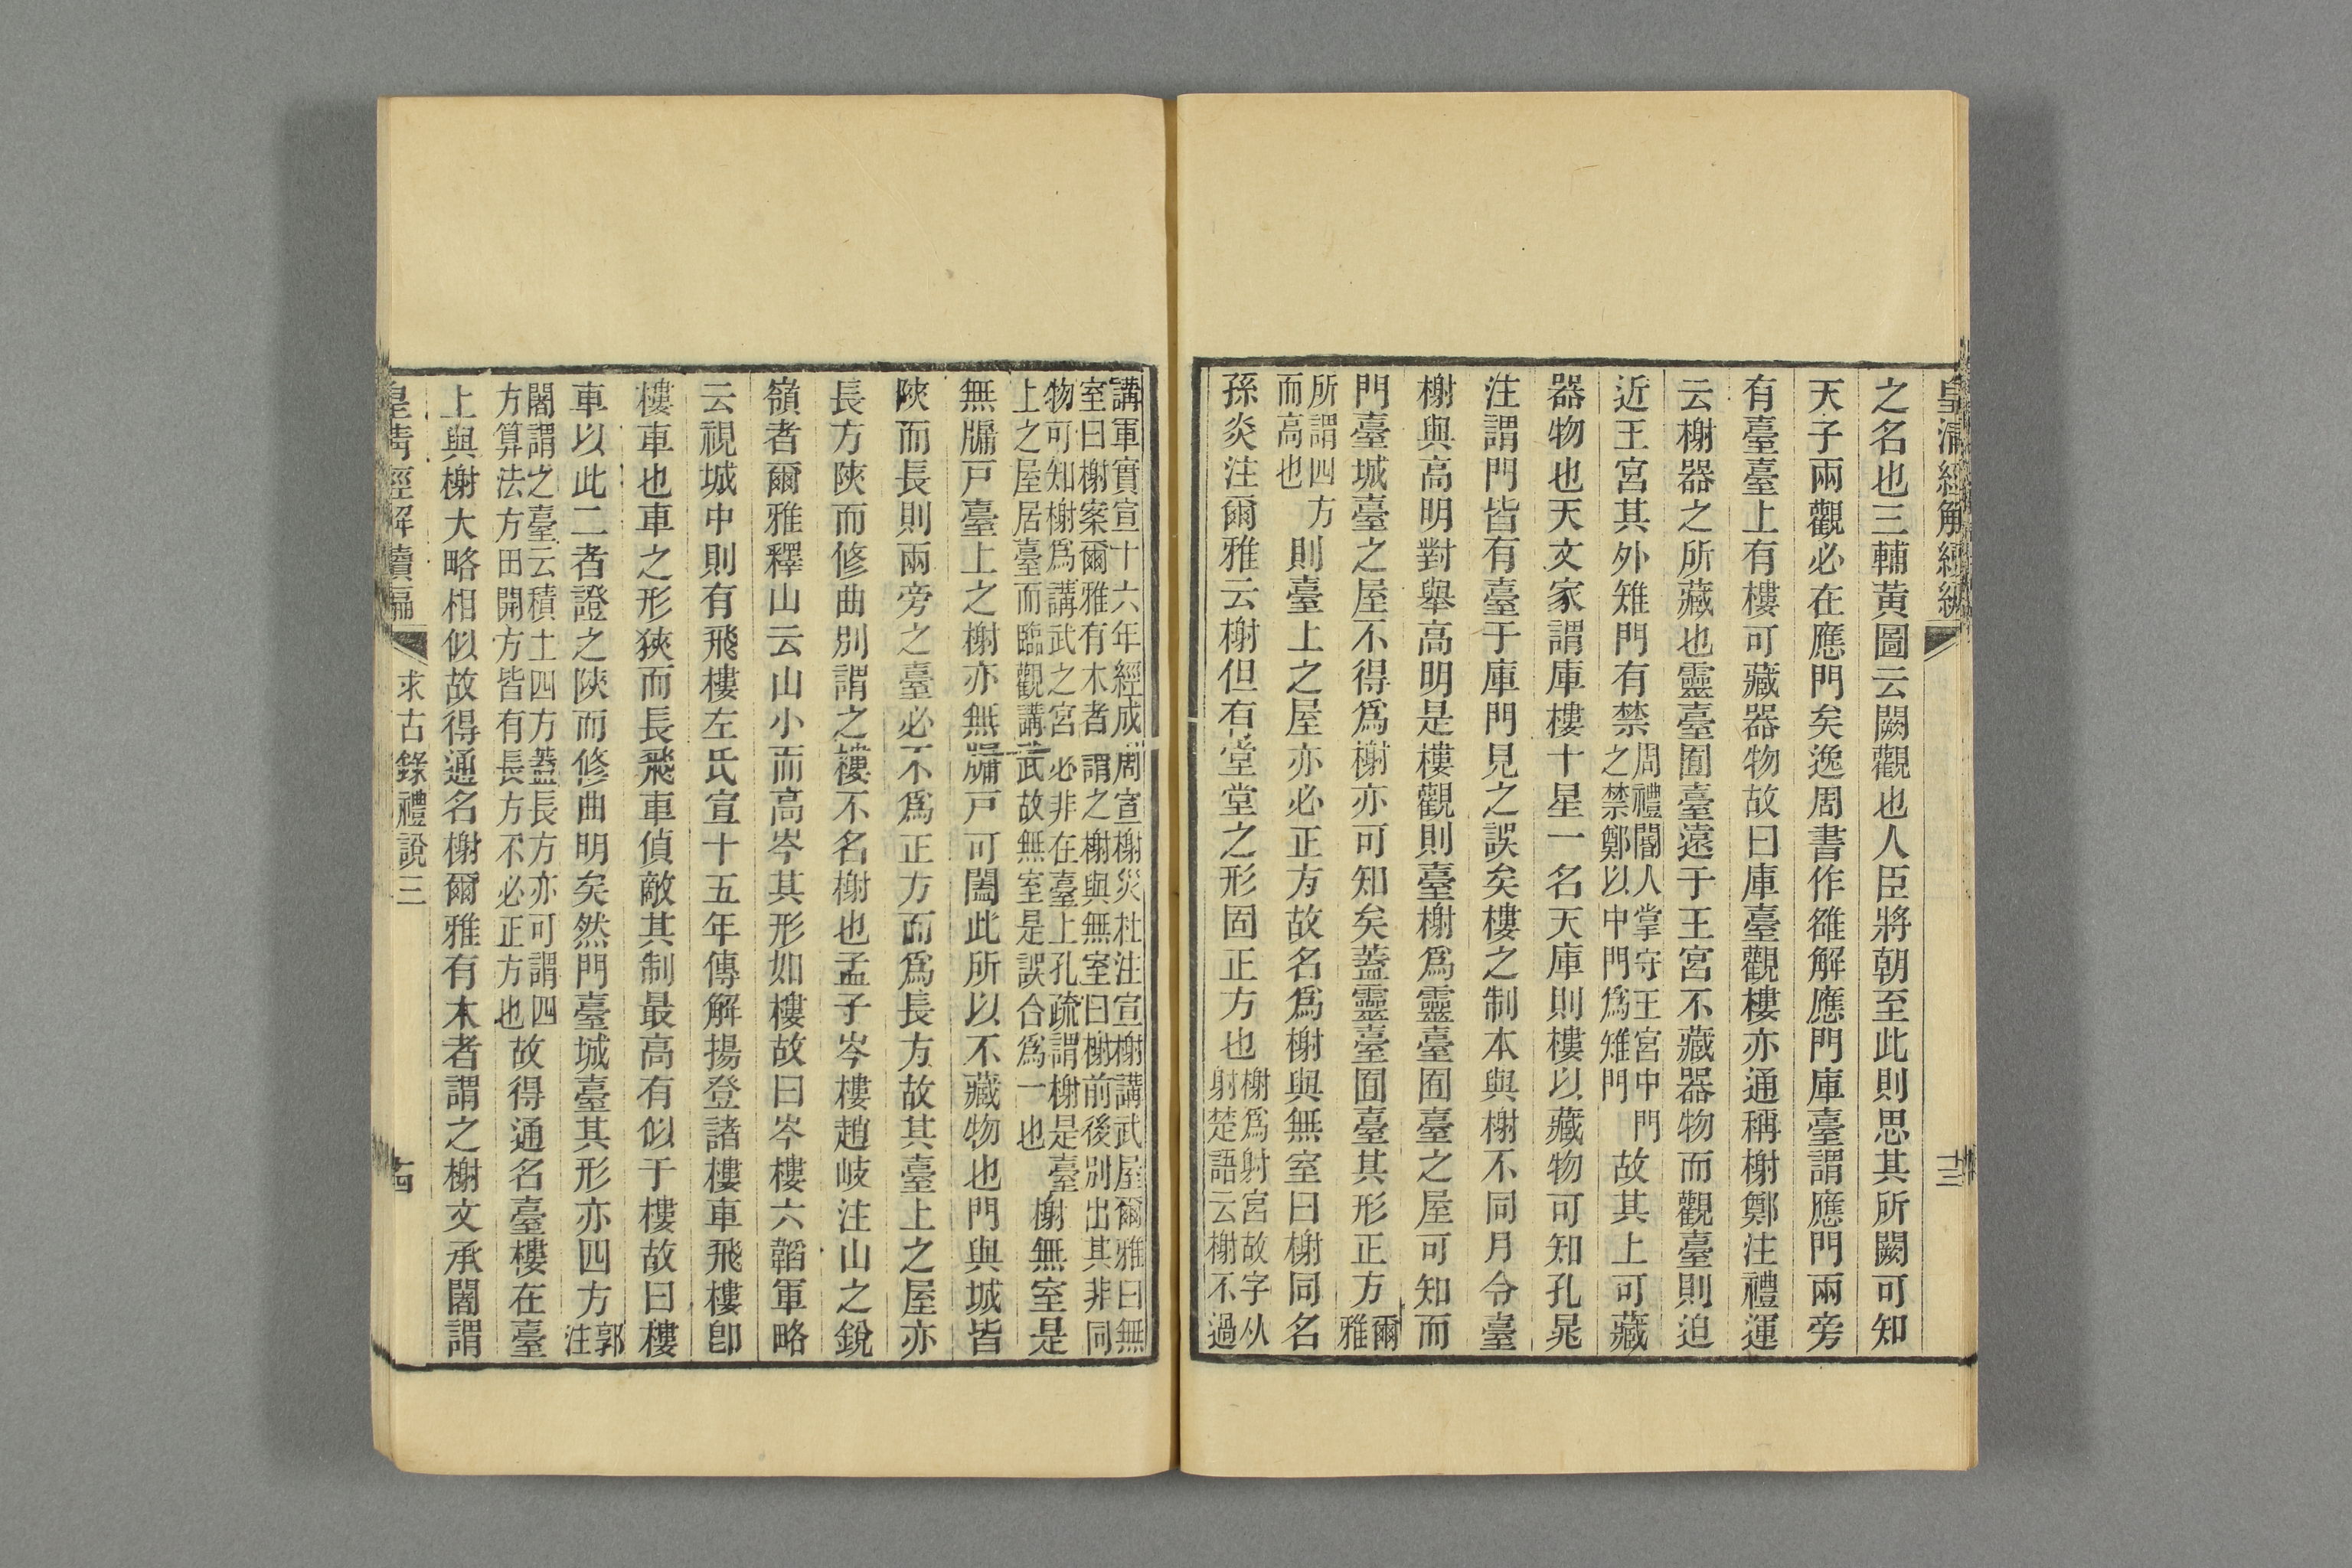 皇清經解經編
十三
之名也三輔黃圖云闕觀也人臣將朝至此則思其所闕可知
天子兩觀必在應門矣逸周書作雒解應門庫臺謂應門兩旁
有臺臺上有樓可藏器物故曰庫臺觀樓亦通稱榭鄭注禮運
云榭器之所藏也靈臺囿臺遠于王宮不藏器物而觀臺則迫
近王宮其外雉門有禁周禮閽人掌守王宮中門之禁鄭以中門爲雉門故其上可藏
器物也天文家謂庫樓十星一名天庫則樓以藏物可知孔晁
注謂門皆有臺于庫門見之誤矣樓之制本與榭不同月令臺
榭與高明對舉高明是樓觀則臺榭爲靈臺囿臺之屋可知而
門臺城臺之屋不得爲榭亦可知矣蓋靈臺囿臺其形正方爾雅
所謂四方而高也則臺上之屋亦必正方故名爲榭與無室曰榭同名
孫炎注爾雅云榭但有堂堂之形固正方也榭爲射宮故字从射楚語云榭不過
講軍實宣十六年經成周宣榭災杜注宣榭講武屋爾雅曰無
室曰榭案爾雅有木者謂之榭與無室曰榭前後別出其非同
物可知榭爲講武之宮必非在臺上孔疏謂榭是臺
上之屋居臺而臨觀講武故無室是誤合爲一也榭無室是
無牖戸臺上之榭亦無牖戸可闔此所以不藏物也門與城皆
陜而長則兩旁之臺必不爲正方而爲長方故其臺上之屋亦
長方陜而修曲別謂之樓不名榭也孟子岑樓趙岐注山之銳
嶺者爾雅釋山云山小而高岑其形如樓故曰岑樓六韜軍略
云視城中則有飛樓左氏宣十五年傳解揚登諸樓車飛樓卽
樓車也車之形狹而長飛車偵敵其制最高有似于樓故曰樓
車以此二者證之陜而修曲明矣然門臺城臺其形亦四方郭注
闍謂之臺云積土四方蓋長方亦可謂四方算法方田開方皆有長方不必正方也故得通名臺樓在臺
上與榭大略相似故得通名榭爾雅有木者謂之榭文承闍謂
皇清經解續編
求古錄禮說三
十四